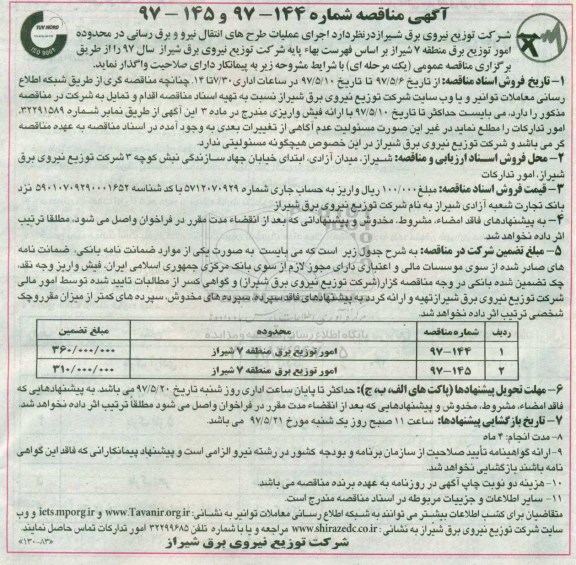 آگهی مناقصه شماره ۱۴۴- ۹۷ و ۱۴۵- ۹۷
شرکت توزیع نیروی برق شیراز درنظردارد اجرای عملیات طرح های انتقال نیرو و برق رسانی در محدوده
امور توزیع برق منطقه ۷ شیراز بر اساس فهرست بهاء پایه شرکت توزیع نیروی برق شیراز سال ۹۷ را از طریق
برگزاری مناقصه عمومی (یک مرحله ای) با شرایط مشروحه زیر به پیمانکار دارای صلاحیت واگذار نماید.
۱- تاریخ فروش اسناد مناقصه: از تاریخ ۹۷/۵/۶ تا تاریخ ۹۷/۵/۱۰ در ساعات اداری ۷/۳۰ تا ۱۳. چنانچه مناقصه گری از طریق شبکه اطلاع
رسانی معاملات توانیر و یا وب سایت شرکت توزیع نیروی برق شیراز نسبت به تهیه اسناد مناقصه اقدام و تمایل به شرکت در مناقصه
مذکور را دارد، می بایست حداکثر تا تاریخ ۹۷/۵/۱۰ با ارائه فیش واریزی مندرج در ماده ۳ این آگهی از طریق نمابر شماره ۳۲۲۹۱۵۸۹
امور تدارکات را مطلع نماید در غیر این صورت مسئولیت عدم آگاهی از تغییرات بعدی به وجود آمده در اسناد مناقصه به عهده مناقصه
گر می باشد و شرکت توزیع نیروی برق شیراز در این خصوص هیچگونه مسئولیتی ندارد.
۲- محل فروش اسناد ارزیابی و مناقصه: شیراز، میدان آزادی، ابتدای خیابان جهاد سازندگی نبش کوچه ۳ شرکت توزیع نیروی برق
شیراز، امور تدارکات
۳- قیمت فروش اسناد مناقصه: مبلغ ۱۰۰/۰۰۰ ریال واریز به حساب جاری شماره ۵۷۱۲۰۷۰۹۲۹ با کد شناسه ۵۹۰۱۰۷۰۹۲۹۰۰۰۱۶۵۲ نزد
بانک تجارت شعبه آزادی شیراز به نام شرکت توزیع نیروی برق شیراز
۴- به پیشنهادهای فاقد امضاء، مشروط، مخدوش و پیشنهاداتی که بعد از انقضاء مدت مقرر در فراخوان واصل می شود، مطلقا ترتیب
اثر داده نخواهد شد.
۵- مبلغ تضمین شرکت در مناقصه: به شرح جدول زیر است که می بایست به صورت یکی از موارد ضمانت نامه بانکی، ضمانت نامه
های صادر شده از سوی موسسات مالی و اعتباری دارای مجوز لازم از سوی بانک مرکزی جمهوری اسلامی ایران، فیش واریز وجه نقد،
چک تضمین شده بانکی در وجه مناقصه گزار (شرکت توزیع نیروی برق شیراز) و گواهی کسر از مطالبات تایید شده توسط امور مالی
شرکت توزیع نیروی برق شیراز تهیه و ارائه گردد به پیشنهادهای فاقد سپرده، سپرده های مخدوش، سپرده های کمتر از میزان مقرر و چک
شخصی ترتیب اثر داده نخواهد شد.
ردیف شماره مناقصه محدوده مبلغ تضمین
۱ ۱۴۴-۹۷ امور توزیع برق منطقه ۷ شیراز ۳۶۰/۰۰۰/۰۰۰
۲ ۱۴۵-۹۷ امور توزیع برق منطقه ۷ شیراز ۳۱۰/۰۰۰/۰۰۰
۶- مهلت تحویل پیشنهادها (پاکت های الف، ب، ج): حداکثر تا پایان ساعت اداری روز شنبه تاریخ ۹۷/۵/۲۰ می باشد. به پیشنهادهایی که
فاقد امضاء، مشروط، مخدوش و پیشنهادهایی که بعد از انقضاء مدت مقرر در فراخوان واصل می شود مطلقا ترتیب اثر داده نخواهد شد.
۷- تاریخ بازگشایی پیشنهادها: ساعت ۱۱ صبح روز یک شنبه مورخ ۹۷/۵/۲۱ می باشد.
۸- مدت انجام: ۴ ماه
۹- ارائه گواهینامه تأیید صلاحیت از سازمان برنامه و بودجه کشور در رشته نیرو الزامی است و پیشنهاد پیمانکارانی که فاقد این گواهی
نامه باشند بازگشایی نخواهد شد.
۱۰- هزینه دو نوبت چاپ آگهی در روزنامه به عهده برنده مناقصه می باشد.
۱۱- سایر اطلاعات و جزییات مربوطه در اسناد مناقصه مندرج است.
متقاضیان برای کسب اطلاعات بیشتر می توانند به شبکه اطلاع رسانی معاملات توانیر به نشانی: www.Tavanir.org.ir و iets.mporg.ir و وب
سایت شرکت توزیع نیروی برق شیراز به نشانی: www.shirazedc.co.ir مراجعه و یا با شماره تلفن ۳۲۲۹۹۶۸۵ امور تدارکات تماس حاصل نمایند
شرکت توزیع نیروی برق شیراز
«۱۳۰۰۸۳»
TUV NORD
ISO 9001